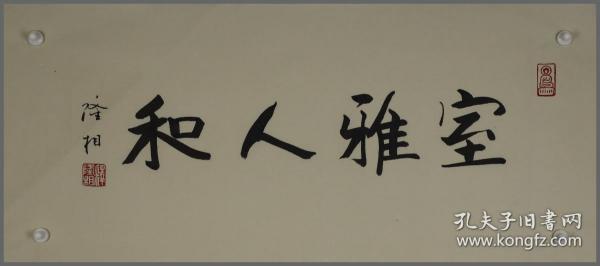 室雅人和
隆相
孔夫子旧书网
www.kongfz.com